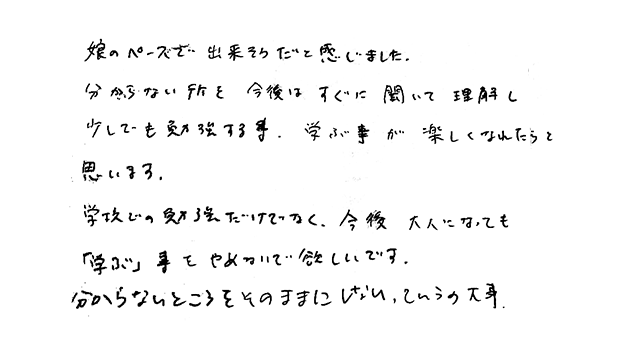 娘のペースで出来そうだと感じました。
分からない所を今後はすぐに聞いて理解し
少しでも勉強する事、学ぶ事が楽しくなれたらと
思います。
学校での勉強だけでなく、今後大人になっても
「学ぶ」事をやめないで欲しいです。
分からないところをそのままにしない、っていうの大事。